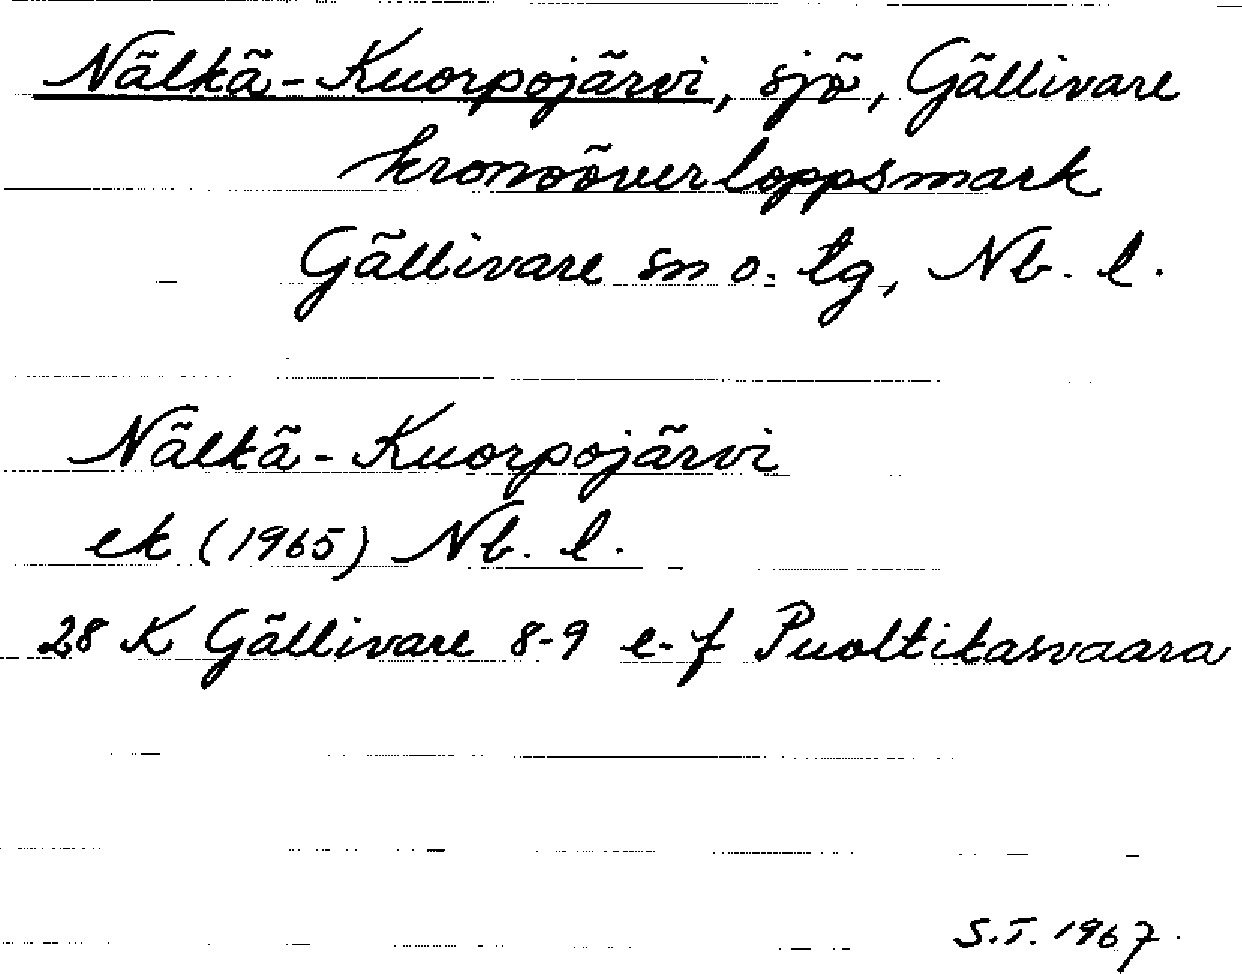 Nälkä-Kuorpojärvi, sjö, Gällivare
kronoöverloppsmark
Gällivare sn o. tg, Nb. l.
Nälkä-Kuorpojärvi
ek (1965) Nb. l.
28 K Gällivare 8-9 e-f Puoltikasvaara
S.T. 1967.